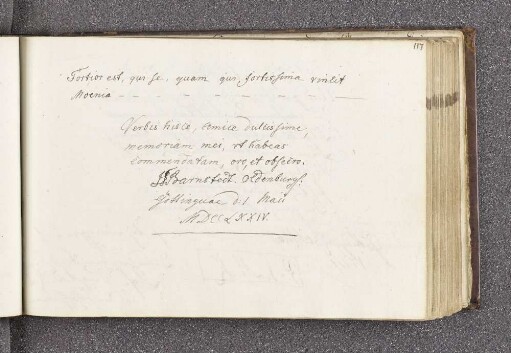 117
Fortior est, qui se, quam qui, fortissima vincit
Moenia – – – – – – – –
Verbis hisce, Amice dulcissime,
memoriam mei, ut habeas
commendatam, oro, et obsecro.
Barnstedt. Oldenburg.
Gottingae d. 1 Maii
MDCCLXXIV.